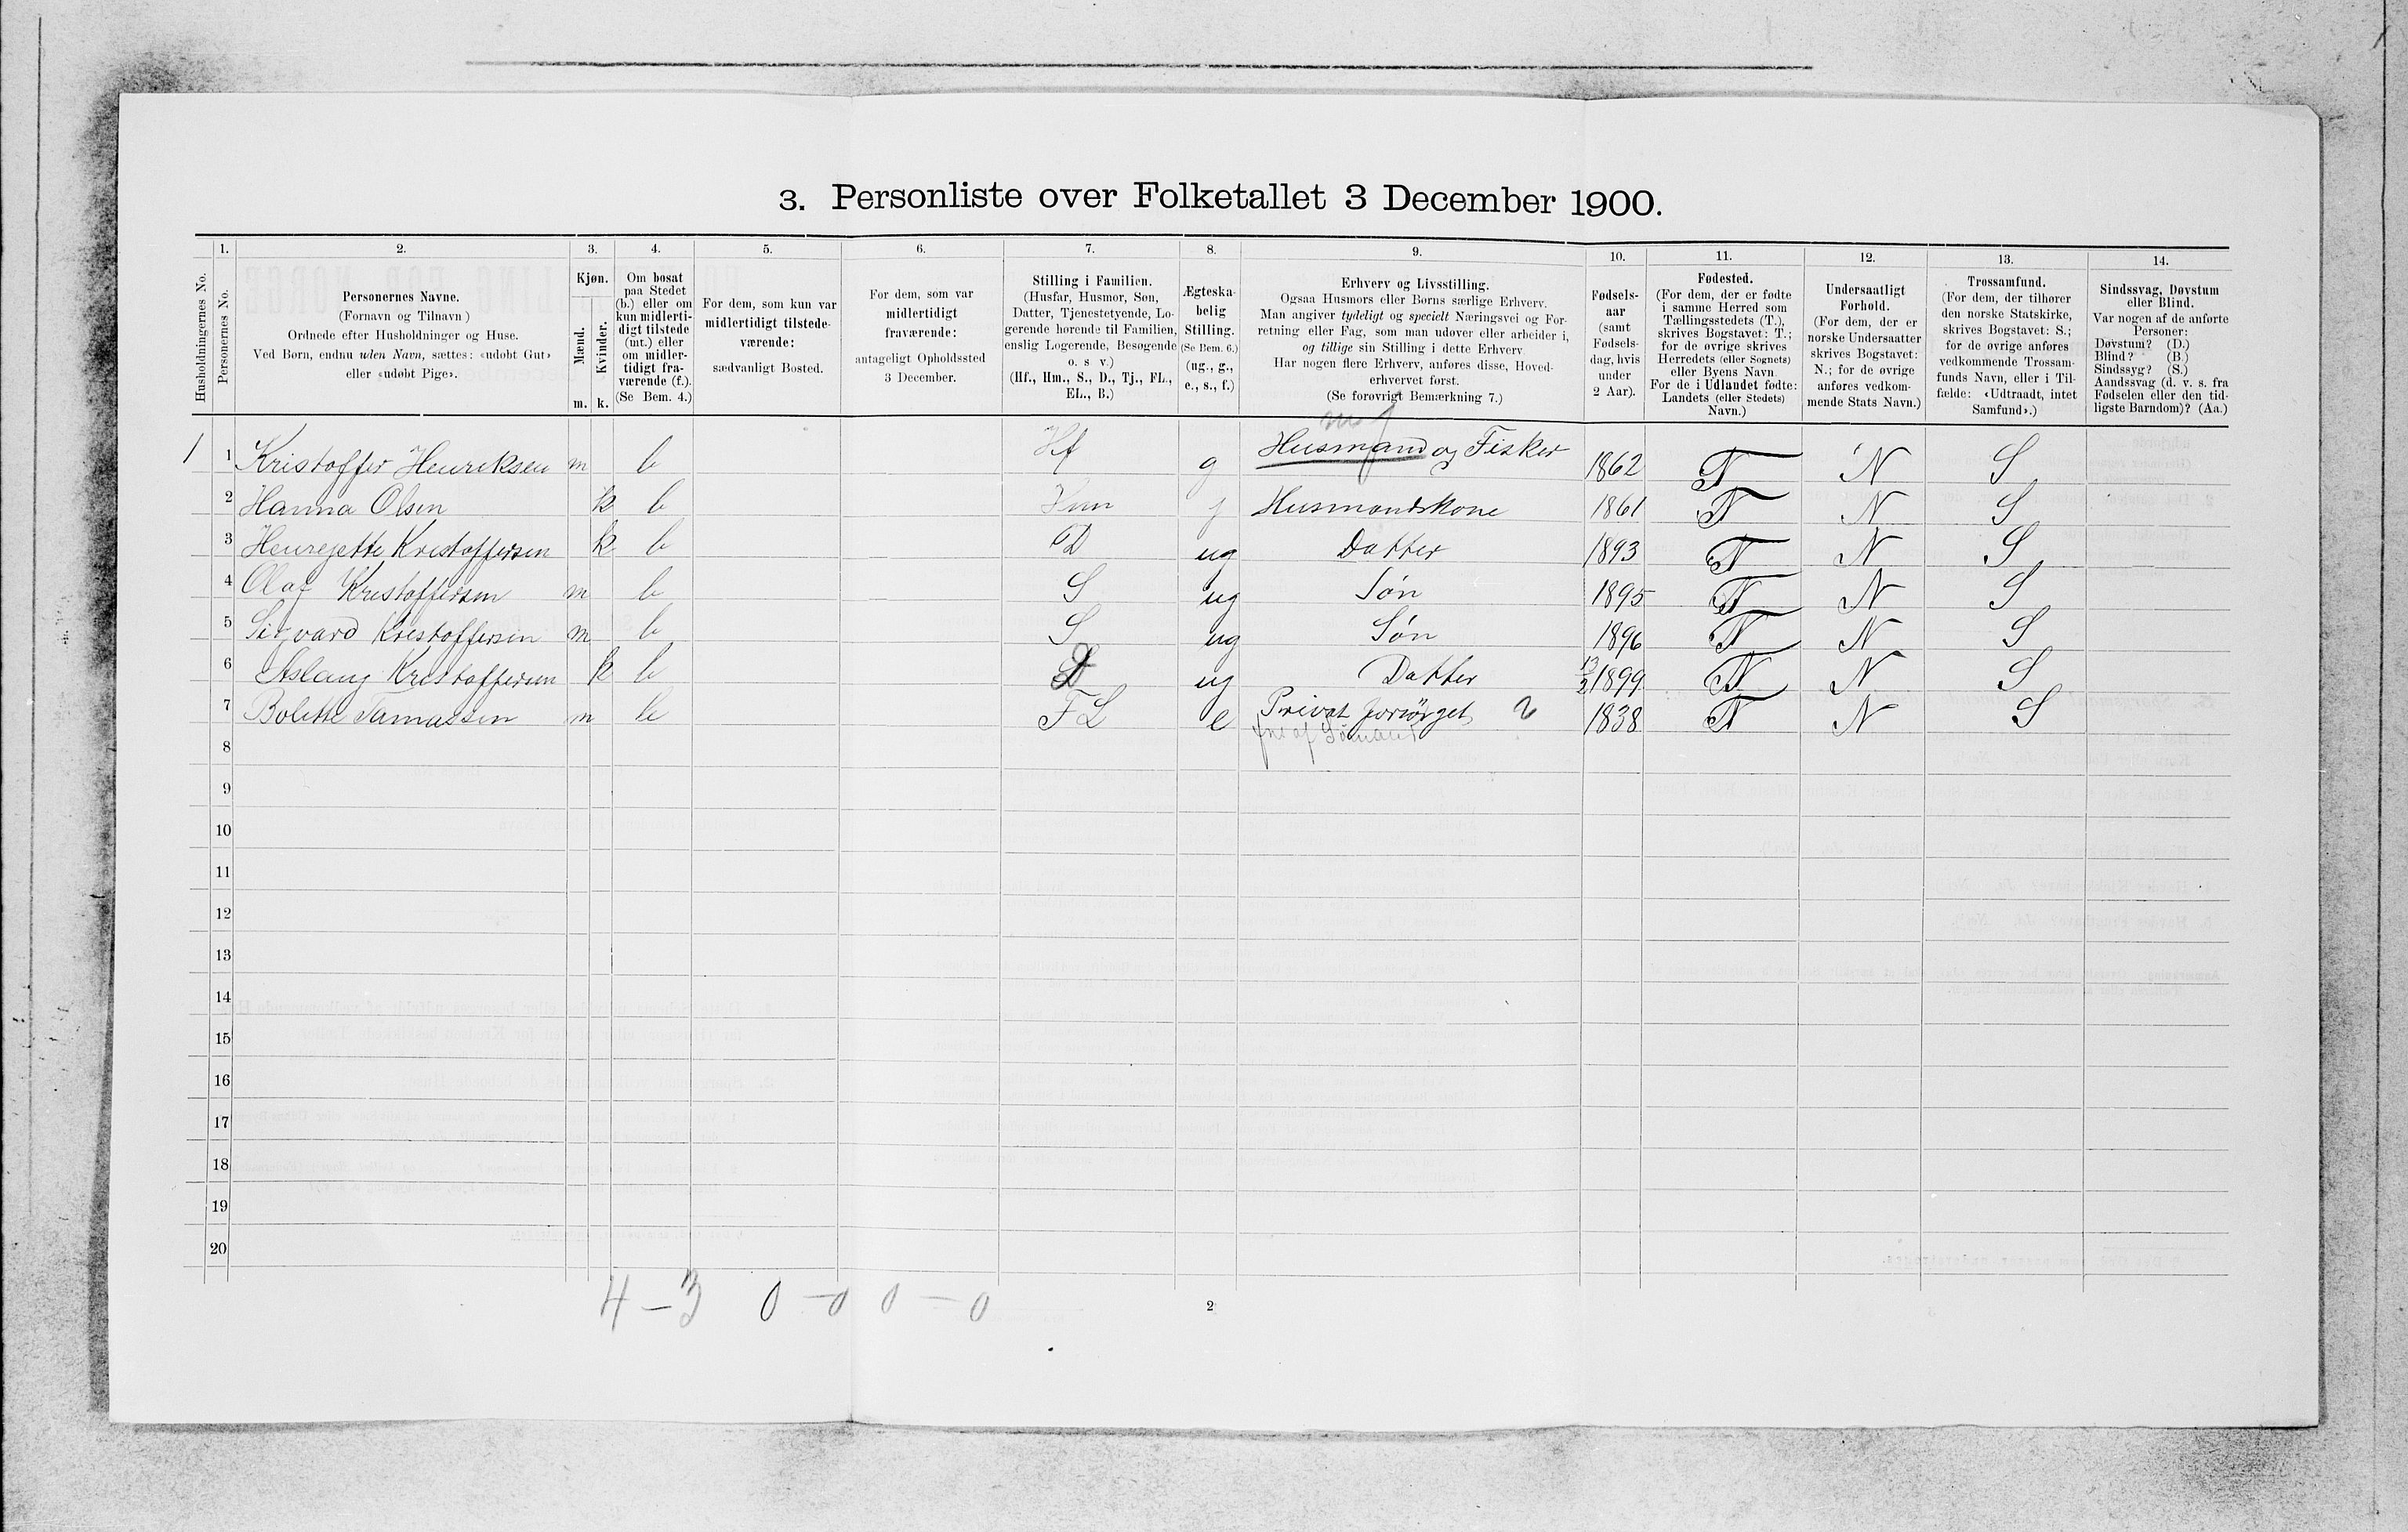 3. Personliste over Folketallet 3 December 1900.
Husholdningernes No.
1.
Personernes No.
2.
Personernes Navne.
(Fornavn og Tilnavn)
Ordnede efter Husholdninger og Huse.
Ved Børn, endnu uden Navn, sættes: «udøbt Gut»
eller «udøbt Pige».
3.
Kjøn.
Mænd.
m.
Kvinder.
k.
4.
Om bosat
paa Stedet
(b.) eller om
kun midlerti-
digt tilstede
(mt.) eller
om midler-
tidigt fra-
værende (f.).
(Se Bem. 4.)
5.
For dem, som kun var
midlertidigt tilstede-
værende:
sædvanligt Bosted.
6.
For dem, som var
midlertidigt
fraværende:
antageligt Opholdssted
3 December.
7.
Stilling i Familien.
(Husfar, Husmor, Søn,
Datter, Tjenestetyende, Lo-
gerende hørende til Familien,
enslig Logerende, Besøgende
o. s v.)
(Hf., Hm., S., D., Tj., FL.,
EL., B.)
8.
Ægteska-
belig
Stilling.
(Se Bem. 6.)
(ug., g.,
e., s., f.)
9.
Erhverv og Livsstilling.
Ogsaa Husmors eller Børns særlige Erhverv.
Man angiver tydeligt og specielt Næringsvei og For-
retning eller Fag, som man udøver eller arbeider i,
og tillige sin Stilling i dette Erhverv
Har nogen flere Erhverv, anføres disse, Hoved-
erhvervet først.
(Se forøvrigt Bemærkning 7.)
10.
Fødsels-
aar
(samt
Fødsels-
dag, hvis
under
2 Aar).
11.
Fødested.
(For dem, der er fødte
i samme Herred som
Tællingsstedets (T.),
skrives Bogstavet: T.;
for de øvrige skrives
Herredets (eller Sognets)
eller Byens Navn
For de i Udlandet fødte:
Landets (eller Stedets)
Navn.)
12.
Undersaatligt
Forhold.
(For dem, der er
norske Undersaatter
skrives Bogstavet:
N.; for de øvrige
anføres vedkom-
mende Stats Navn.)
13.
Trossamfund.
(For dem, der tilhører
den norske Statskirke,
skrives Bogstavet: S.;
for de øvrige anføres
vedkommende Trossam-
funds Navn, eller i Til-
fælde: «Udtraadt, intet
Samfund».)
14.
Sindssvag, Døvstum
eller Blind.
Var nogen af de anførte
Personer:
Døvstum? (D.)
Blind? (B.)
Sindssyg? (S.)
Aandssvag (d. v. s. fra
Fødselen eller den tid-
ligste Barndom)? (Aa.)
1 1 Kristoffer Henriksen m b Hf g Husmand og Fisker 1862 T N S
2 Hanna Olsen k b Hm g Husmandskone 1861 T N S
3 Henrejette Kristoffersen k b D ug Datter 1893 T N S
4 Olaf Kristoffersen m b S ug Søn 1895 T N S
5 Sigvard Kristoffersen m b S ug Søn 1896 T N S
6 Aslaug Kristoffersen k b D ug Datter 13/2 1899 T N S
7 Bolette Tamassen m b FL e Privat forsørget 1838 T N S
8
9
10
11
12
13
14
15
16
17
18
19
20
4 – 3 0 – 0 0 – 0
2